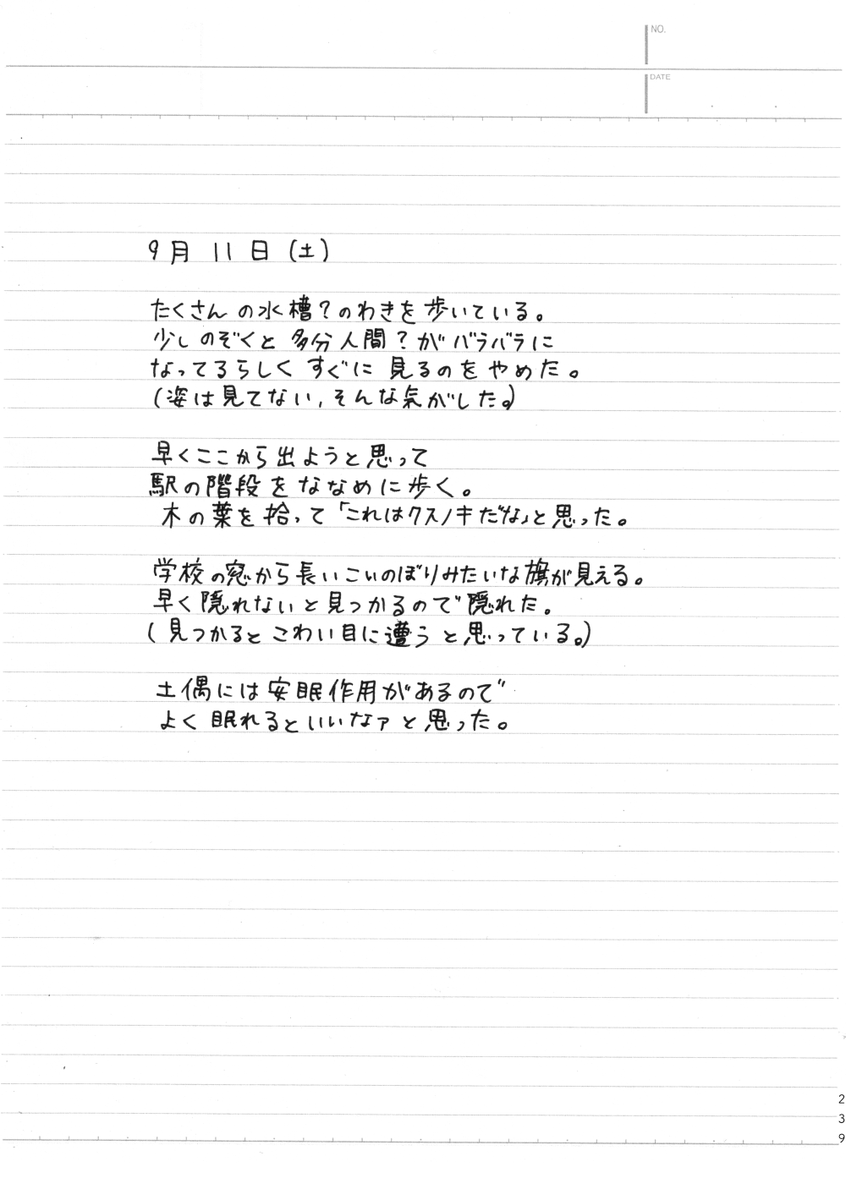 NO.
DATE
9月11日(土)
たくさんの水槽?のわきを歩いている。
少しのぞくと多分人間?がバラバラに
なってるらしくすぐに見るのをやめた。
(姿は見てない、そんな気がした。)
早くここから出ようと思って
駅の階段をななめに歩く。
木の葉を拾って「これはクスノキだな」と思った。
学校の窓から長いこいのぼりみたいな旗が見える。
早く隠れないと見つかるので隠れた。
(見つかるとこわい目に遭うと思っている。)
土偶には安眠作用があるので
よく眠れるといいなァと思った。
239